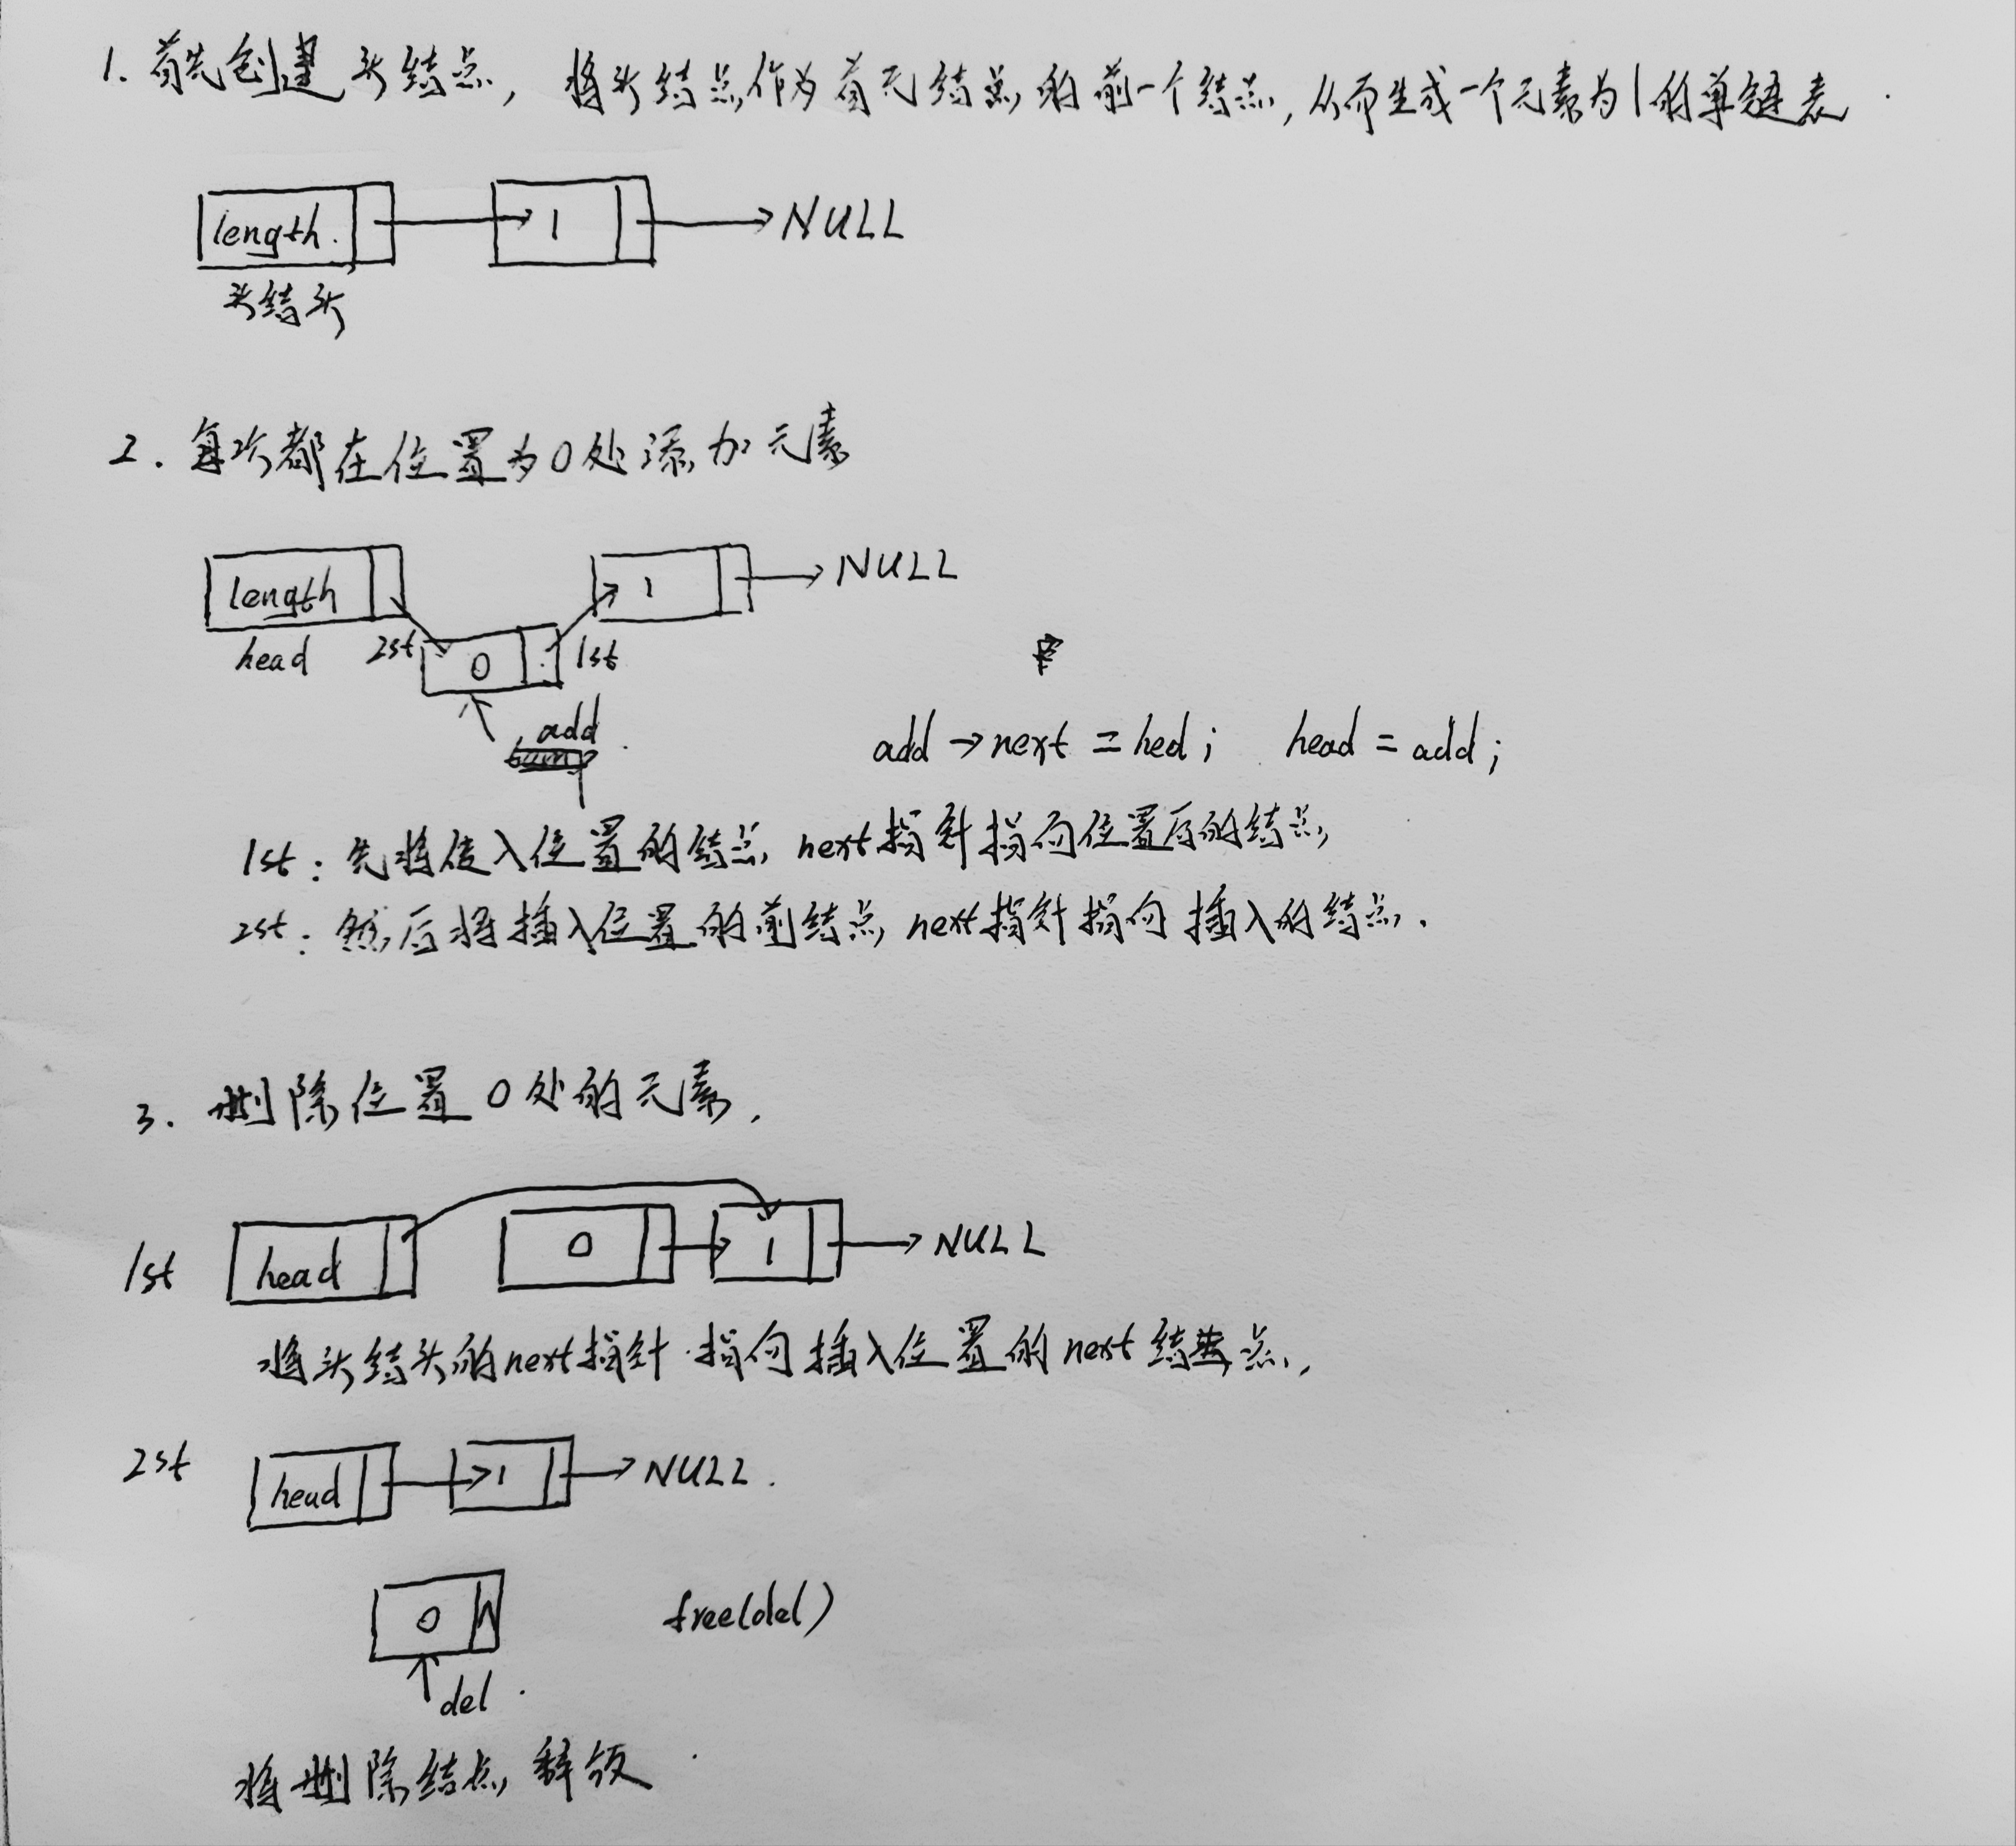 1. 首先创建头结点, 将头结点作为首元结点的前一个结点, 从而生成一个元素为1的单链表
length. 1 NULL
头结头
2. 每次都在位置为0处添加元素
length 1 NULL
head 2st 0 1st
add
add→next = hed; head = add;
1st: 先将使入位置的结点next指针指向位置后的结点,
2st: 然后将插入位置的前结点next指针指向插入的结点.
3. 删除位置0处的元素.
1st head 0 1 NULL
将头结头的next指针指向插入位置的next结点,
2st head 1 NULL.
0 free(del)
del.
将删除结点释放